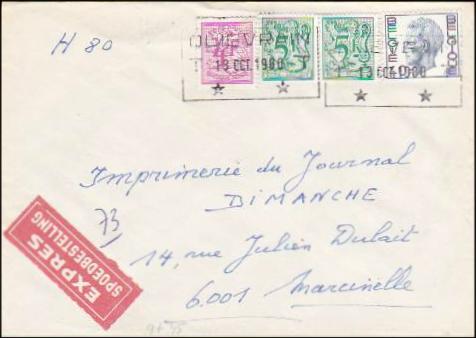 H 80
5F 5F BELGIQUE BELGIE
13 OCT 1980 13 OCT 1980
Imprimerie du Journal
DIMANCHE
73
14, rue Julien Dulait
6.001 Marcinelle
EXPRES
SPOEDBESTELLING